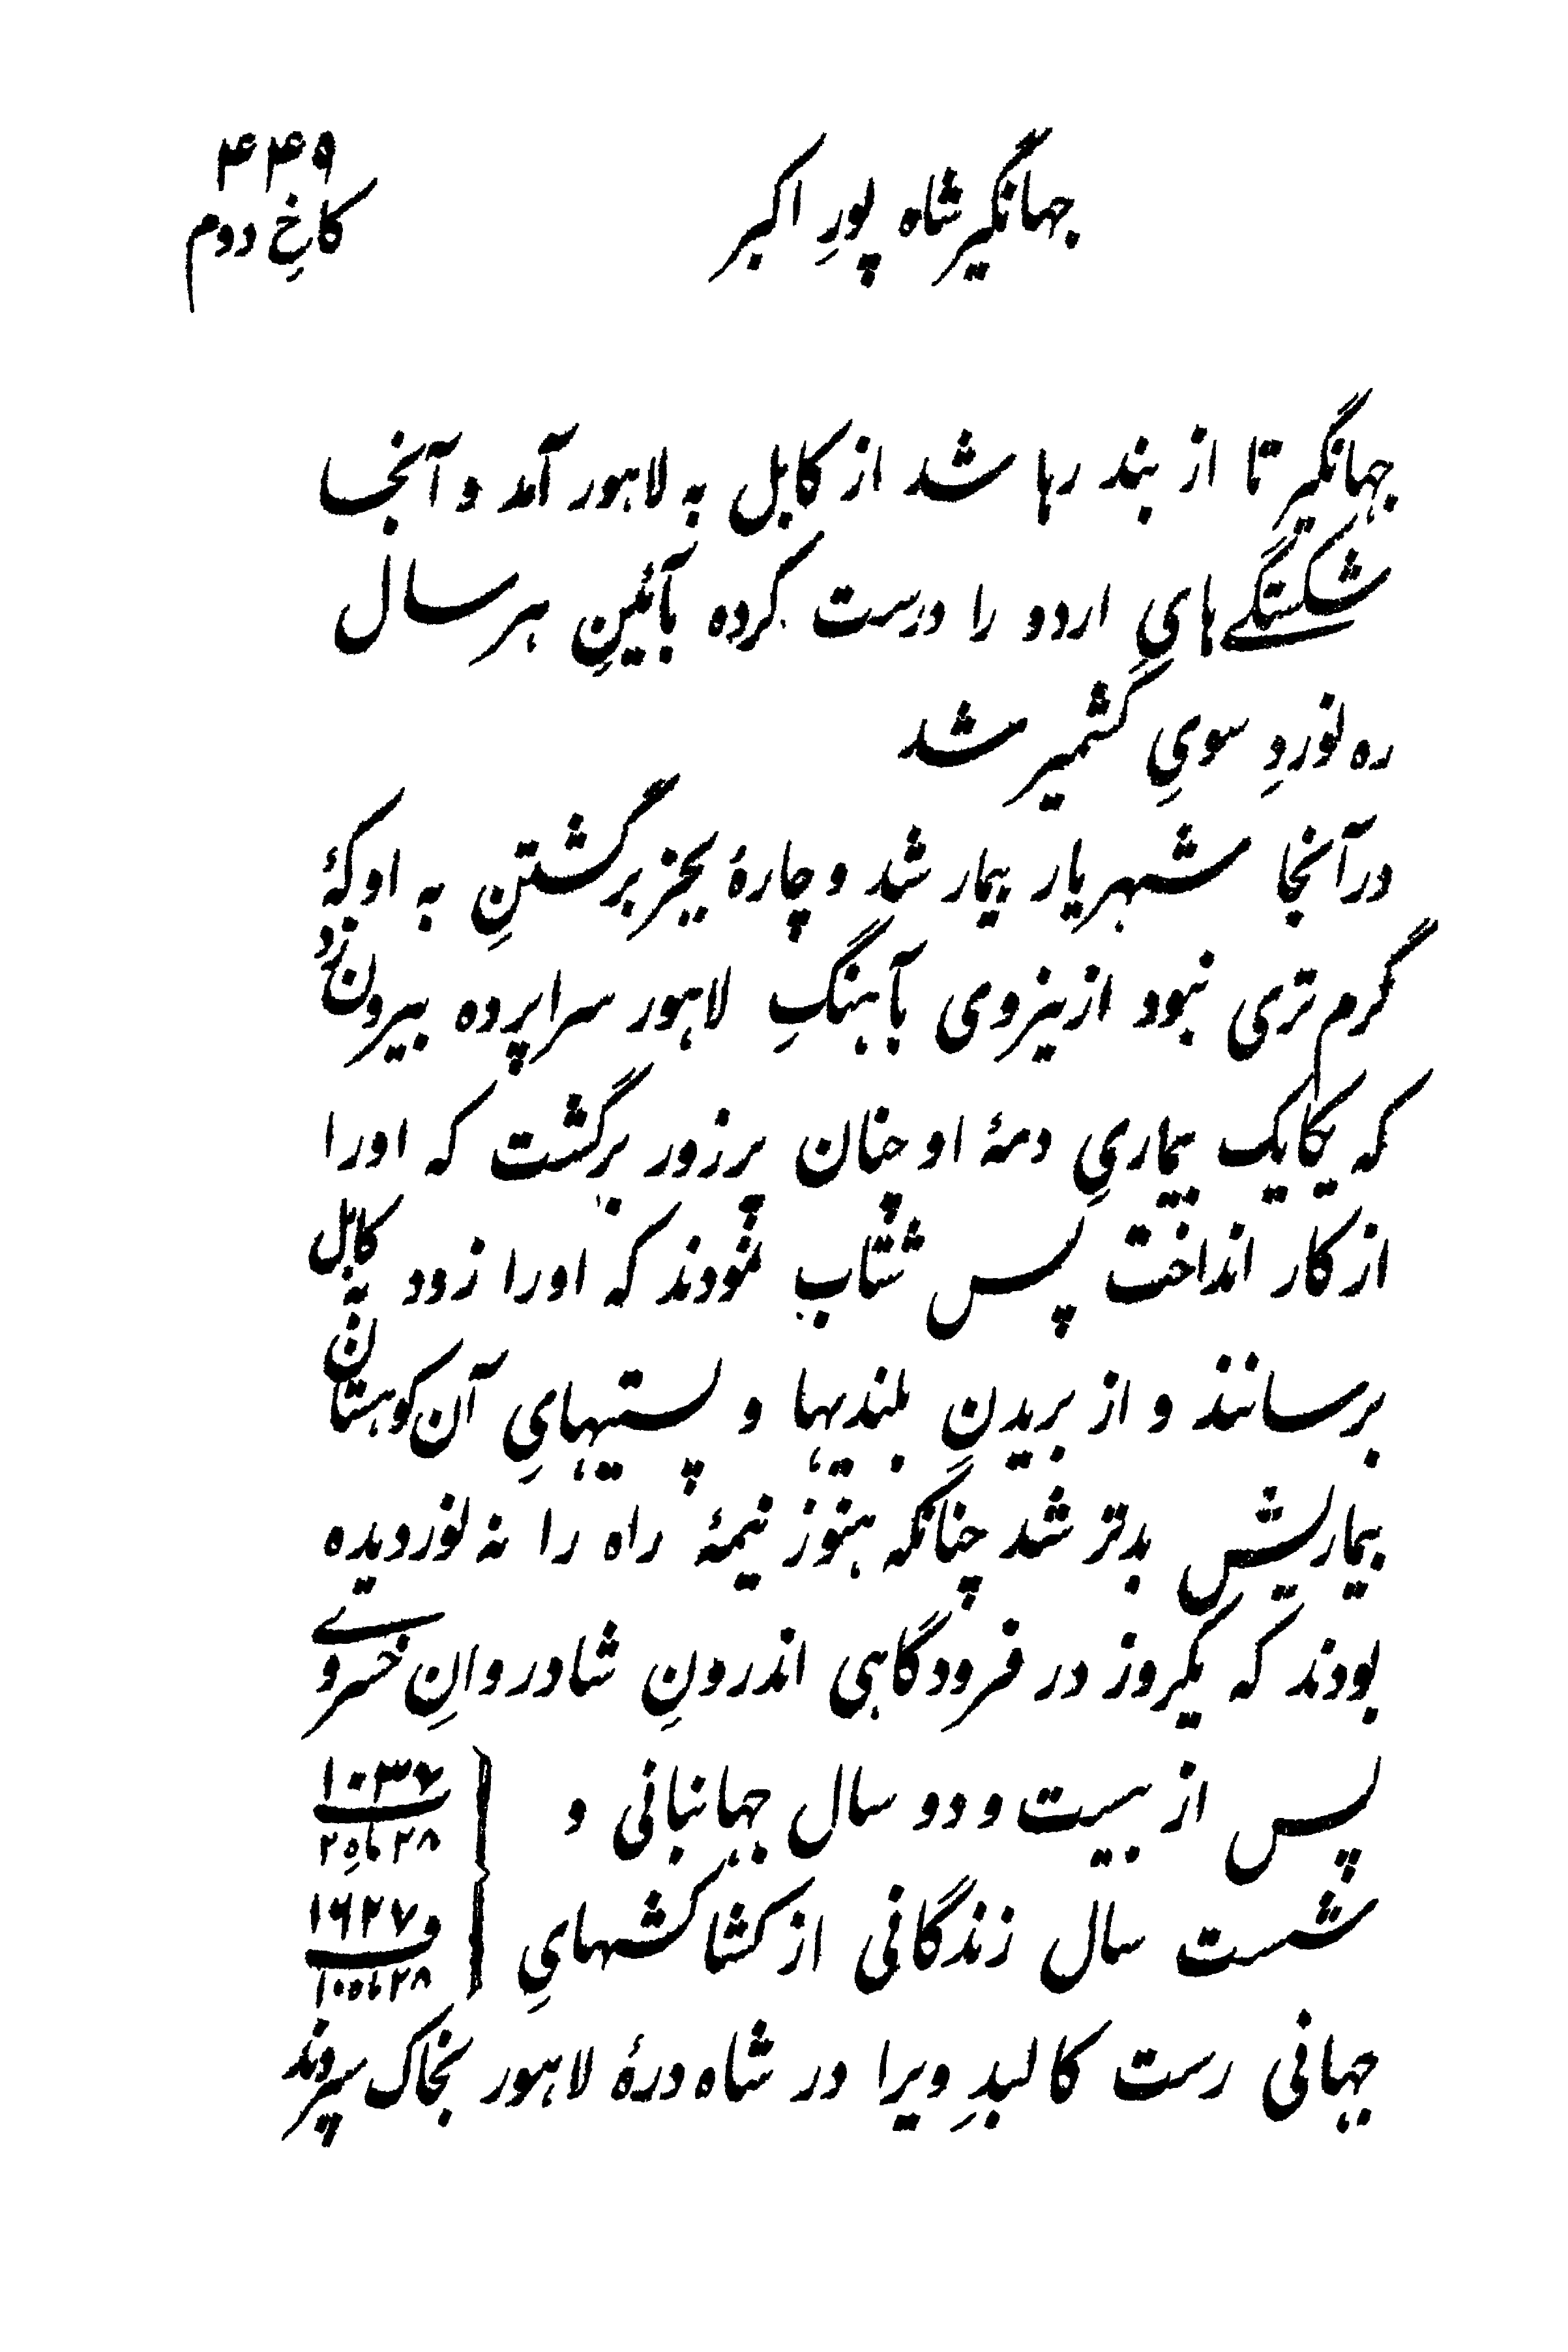 ۴۴۹
جهانگیر شاه پورِ اکبر
کاخِ دوم
جهانگیر تا از بند رها شد از کابل به لاهور آمد و آنجا
شکستگے هایِ اردو را درست کرده بآئینِ هر سال
ره نوردِ سویِ کشمیر شد
در آنجا شهریار بیمار شد و چارهٔ بجز برگشتنِ به اوکهٔ
گرم تری نبود ازینروی بآهنگِ لاهور سراپرده بیرون زد
که یکایک بیماریِ دمهٔ او چنان پر زور برگشت که او را
از کار انداخت پس شتاب نمودند که او را زود به کابل
برسانند و از بریدنِ بلندیها و پستیهایِ آن کوهستان
بیماریش بدتر شد چنانکه هنوز نیمهٔ راه را نه نوردیده
بودند که یکروز در فرودگاهی اندرونِ شادروانِ خسروے
پس از بیست و دو سال جهانبانی و
۱۰۳۶
۲۸ ماهِ ۲
شست سال زندگانی از کشاکشهایِ
و ۱۶۲۷
۲۸ ماه ۱۰
جهانی رست کالبدِ ویرا در شاه درهٔ لاهور بخاک سپردند